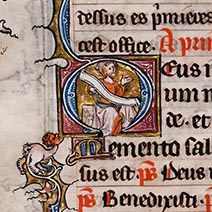 dessus es p̃mieres
cest office. A prim
Eus i
um m
de. et
emento sal
sus est. p̄s Deus i
p̄s Benedixisti. p̄s